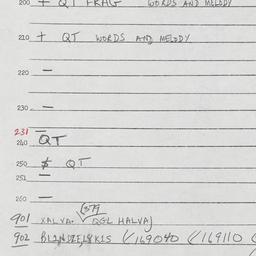 200 + QT FRAG WORDS AND MELODY
210 + QT WORDS AND MELODY
220 —
230 —
231 —
240 QT
250 $ QT
251 —
260 —
(879
901 XALVA. QGL HALVA)
902 (169040 (169110 (